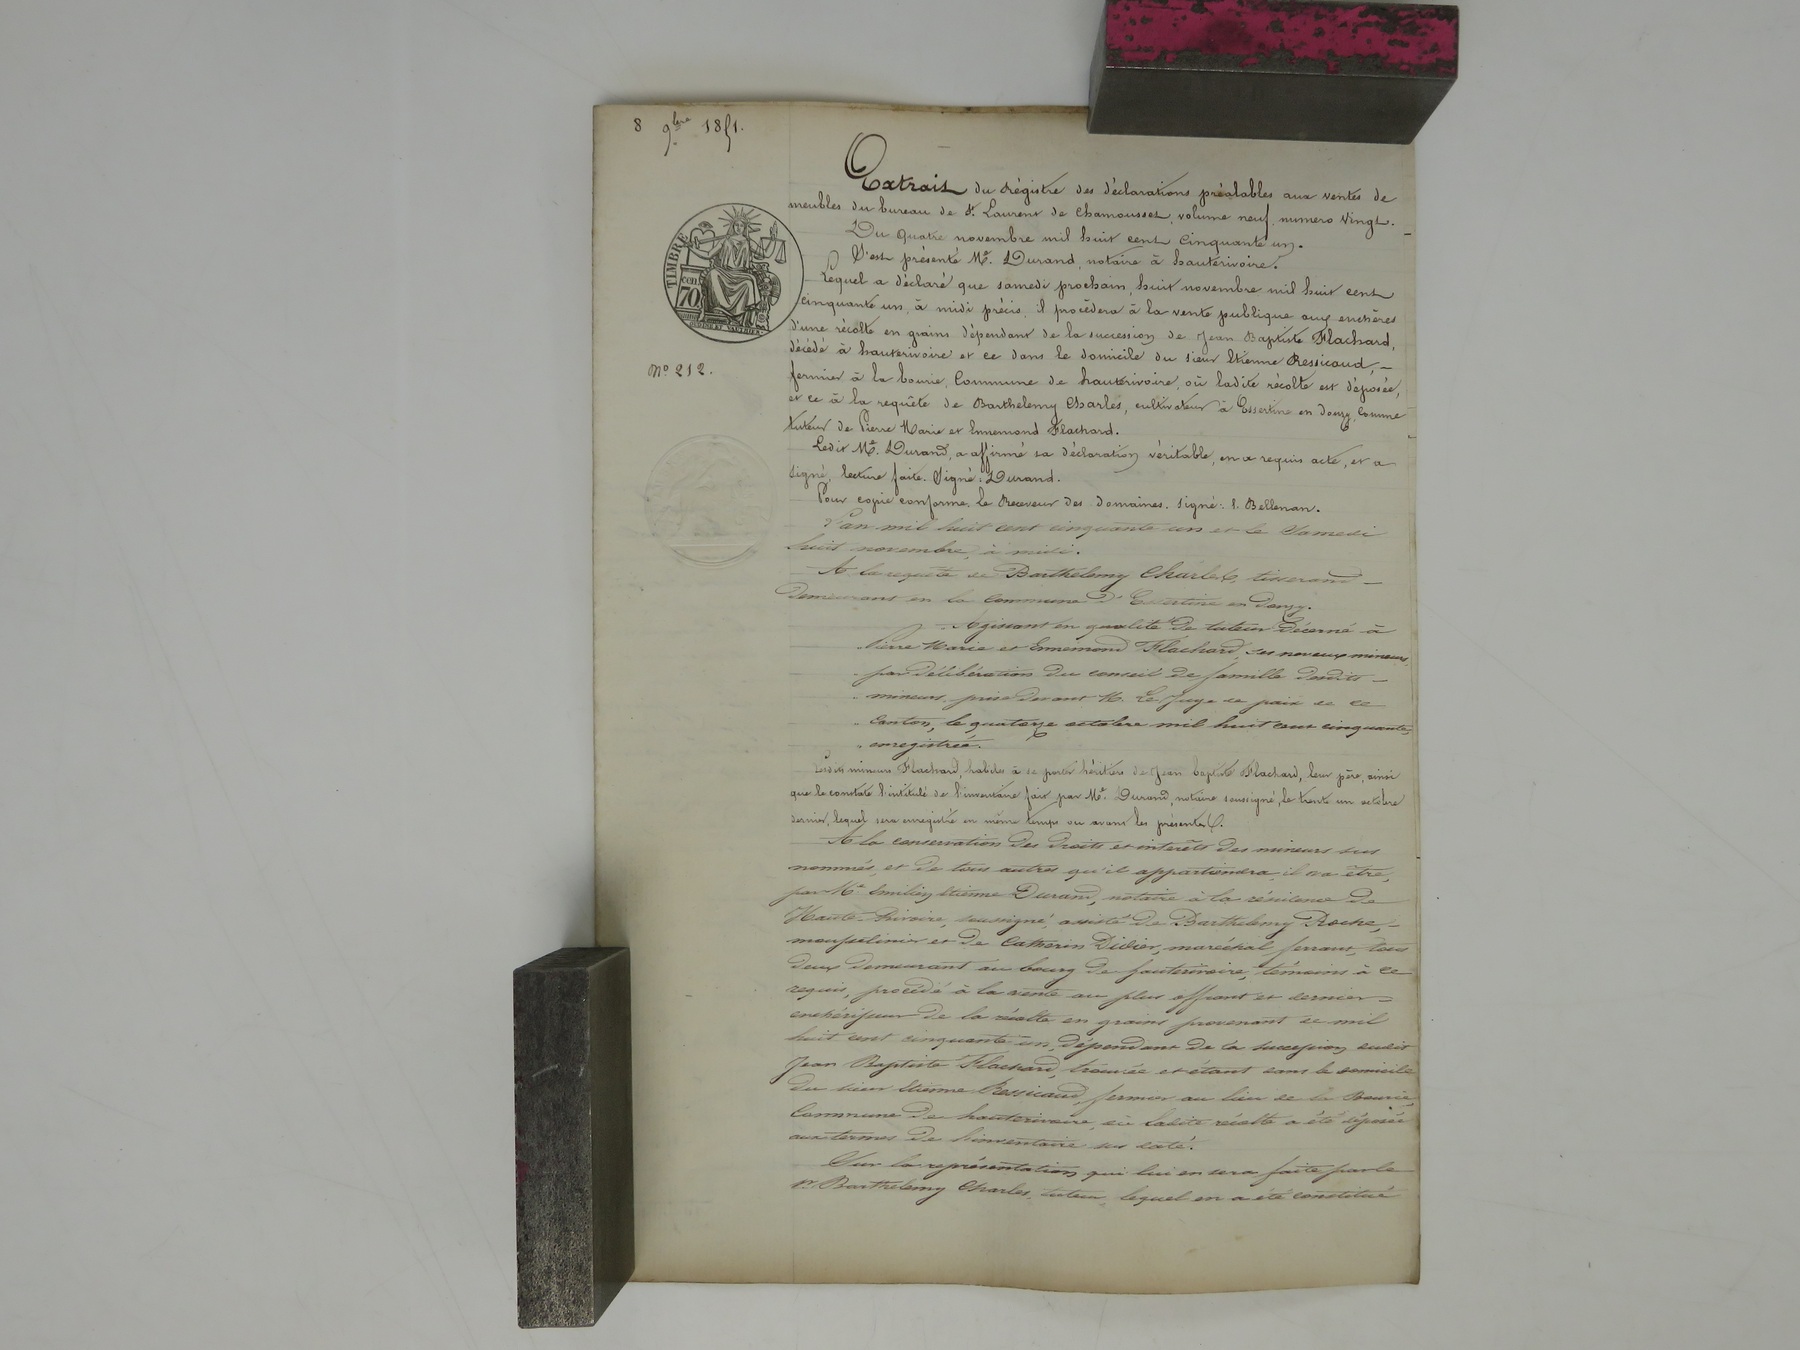 8 9bre 1851.
Extrait du régistre des déclarations préalables aux ventes de
meubles du bureau de St. Laurent de Chamousset, volume neuf numero vingt.
Du quatre novembre mil huit cent cinquante un.
S'est présenté Me. Durand, notaire à hauterivoire.
Lequel a déclaré que samedi prochain, huit novembre mil huit cent
cinquante un, à midi précis, il procèdera à la vente publique aux enchères
d'une récolte en grains dépendant de la succession de Jean Baptiste Flachard,
décédé à hauterivoire et ce dans le domicile du sieur Etienne Ressicaud,
fermier à la bourie, Commune de hauterivoire, où ladite récolte est déposée,
et ce à la requête de Barthelemy Charles, cultivateur à Essertine en donzy, Comme
tuteur de Pierre Marie et Ennemond Flachard.
Ledit Me. Durand, a affirmé sa déclaration véritable, en a requis acte, et a
signé, lecture faite. Signé: Durand.
Pour copie conforme. le Receveur des domaines. signé: Bellenan.
L'an mil huit cent cinquante un et le Samedi
huit novembre, à midi.
A la requête de Barthelemy Charles tisserand
demeurant en la Commune d'Essertine en donzy.
Agissant en qualité de tuteur décerné à
Pierre Marie et Ennemond Flachard, ses neveux mineurs,
par délibération du conseil de famille desdits
mineurs, prise devant M. Le Juge de paix de ce
Canton, le quatorze octobre mil huit cent cinquante,
enregistrée.
Lesdits mineurs Flachard, habiles à se porter héritiers de Jean baptiste Flachard, leur père, ainsi
que le constate l'intitulé de l'inventaire fait par Me. Durand, notaire soussigné, le trente un octobre
dernier, lequel sera enregistré en même temps ou avant les présentes.
A la conservation des droits et interêts des mineurs sus
nommés, et de tous autres qu'il appartiendra, il va être,
par Me Emilien Etienne Durand, notaire à la résidence de
Haute-Rivoire, soussigné, assisté de Barthelemy Roche,
mousselinier et de Catherin Didier, maréchal ferrant, tous
deux demeurant au bourg de hauterivoire, témoins à ce
requis, procédé à la vente au plus offrant et dernier
enchérisseur de la récolte en grains provenant de mil
huit cent cinquante un, dépendant de la succession dudit
Jean Baptiste Flachard, trouvée et étant dans le domicile
du sieur Etienne Ressicaud, fermier au lieu de la Bourie,
Commune de hauterivoire, où ladite récolte a été déposée
aux termes de l'inventaire sus daté.
Sur la représentation qui lui en sera faite par le
sr. Barthelemy Charles, tuteur, lequel en a été constitué
TIMBRE
cen
70
No 212.